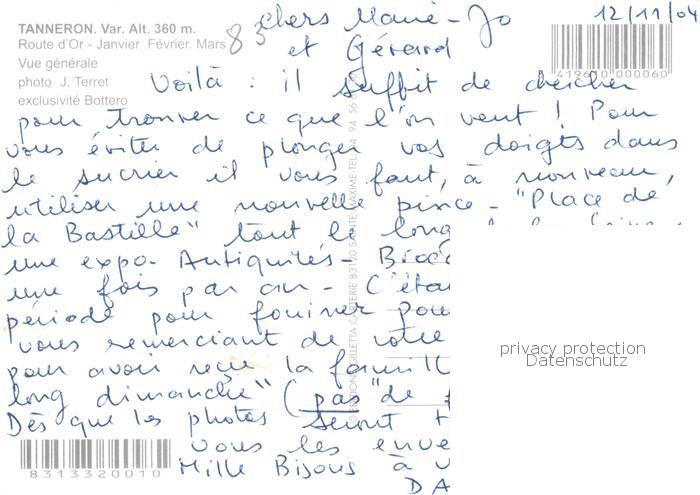 TANNERON. Var. Alt. 360 m.
Route d'Or - Janvier .Février. Mars
Vue générale
photo J. Terret
exclusivité Bottero
83
12/11/04
419610 000060
chers Marie-Jo
et Gérard
Voilà : il suffit de chercher
pour trouver ce que l'on veut ! Pour
vous éviter de plonger vos doigts dans
le sucrier il vous faut, à nouveau,
utiliser une nouvelle pince - "Place de
la Bastille" tout le long
une expo. Antiquités - Broc
une fois par an - C'éta
période pour fouiner pou
vous remerciant de votre
pour avoir reçu la famill
long dimanche" (pas "de
Dès que les photos seront
vous les enve
Mille Bisous à v
DA
8313320010
privacy protection
Datenschutz